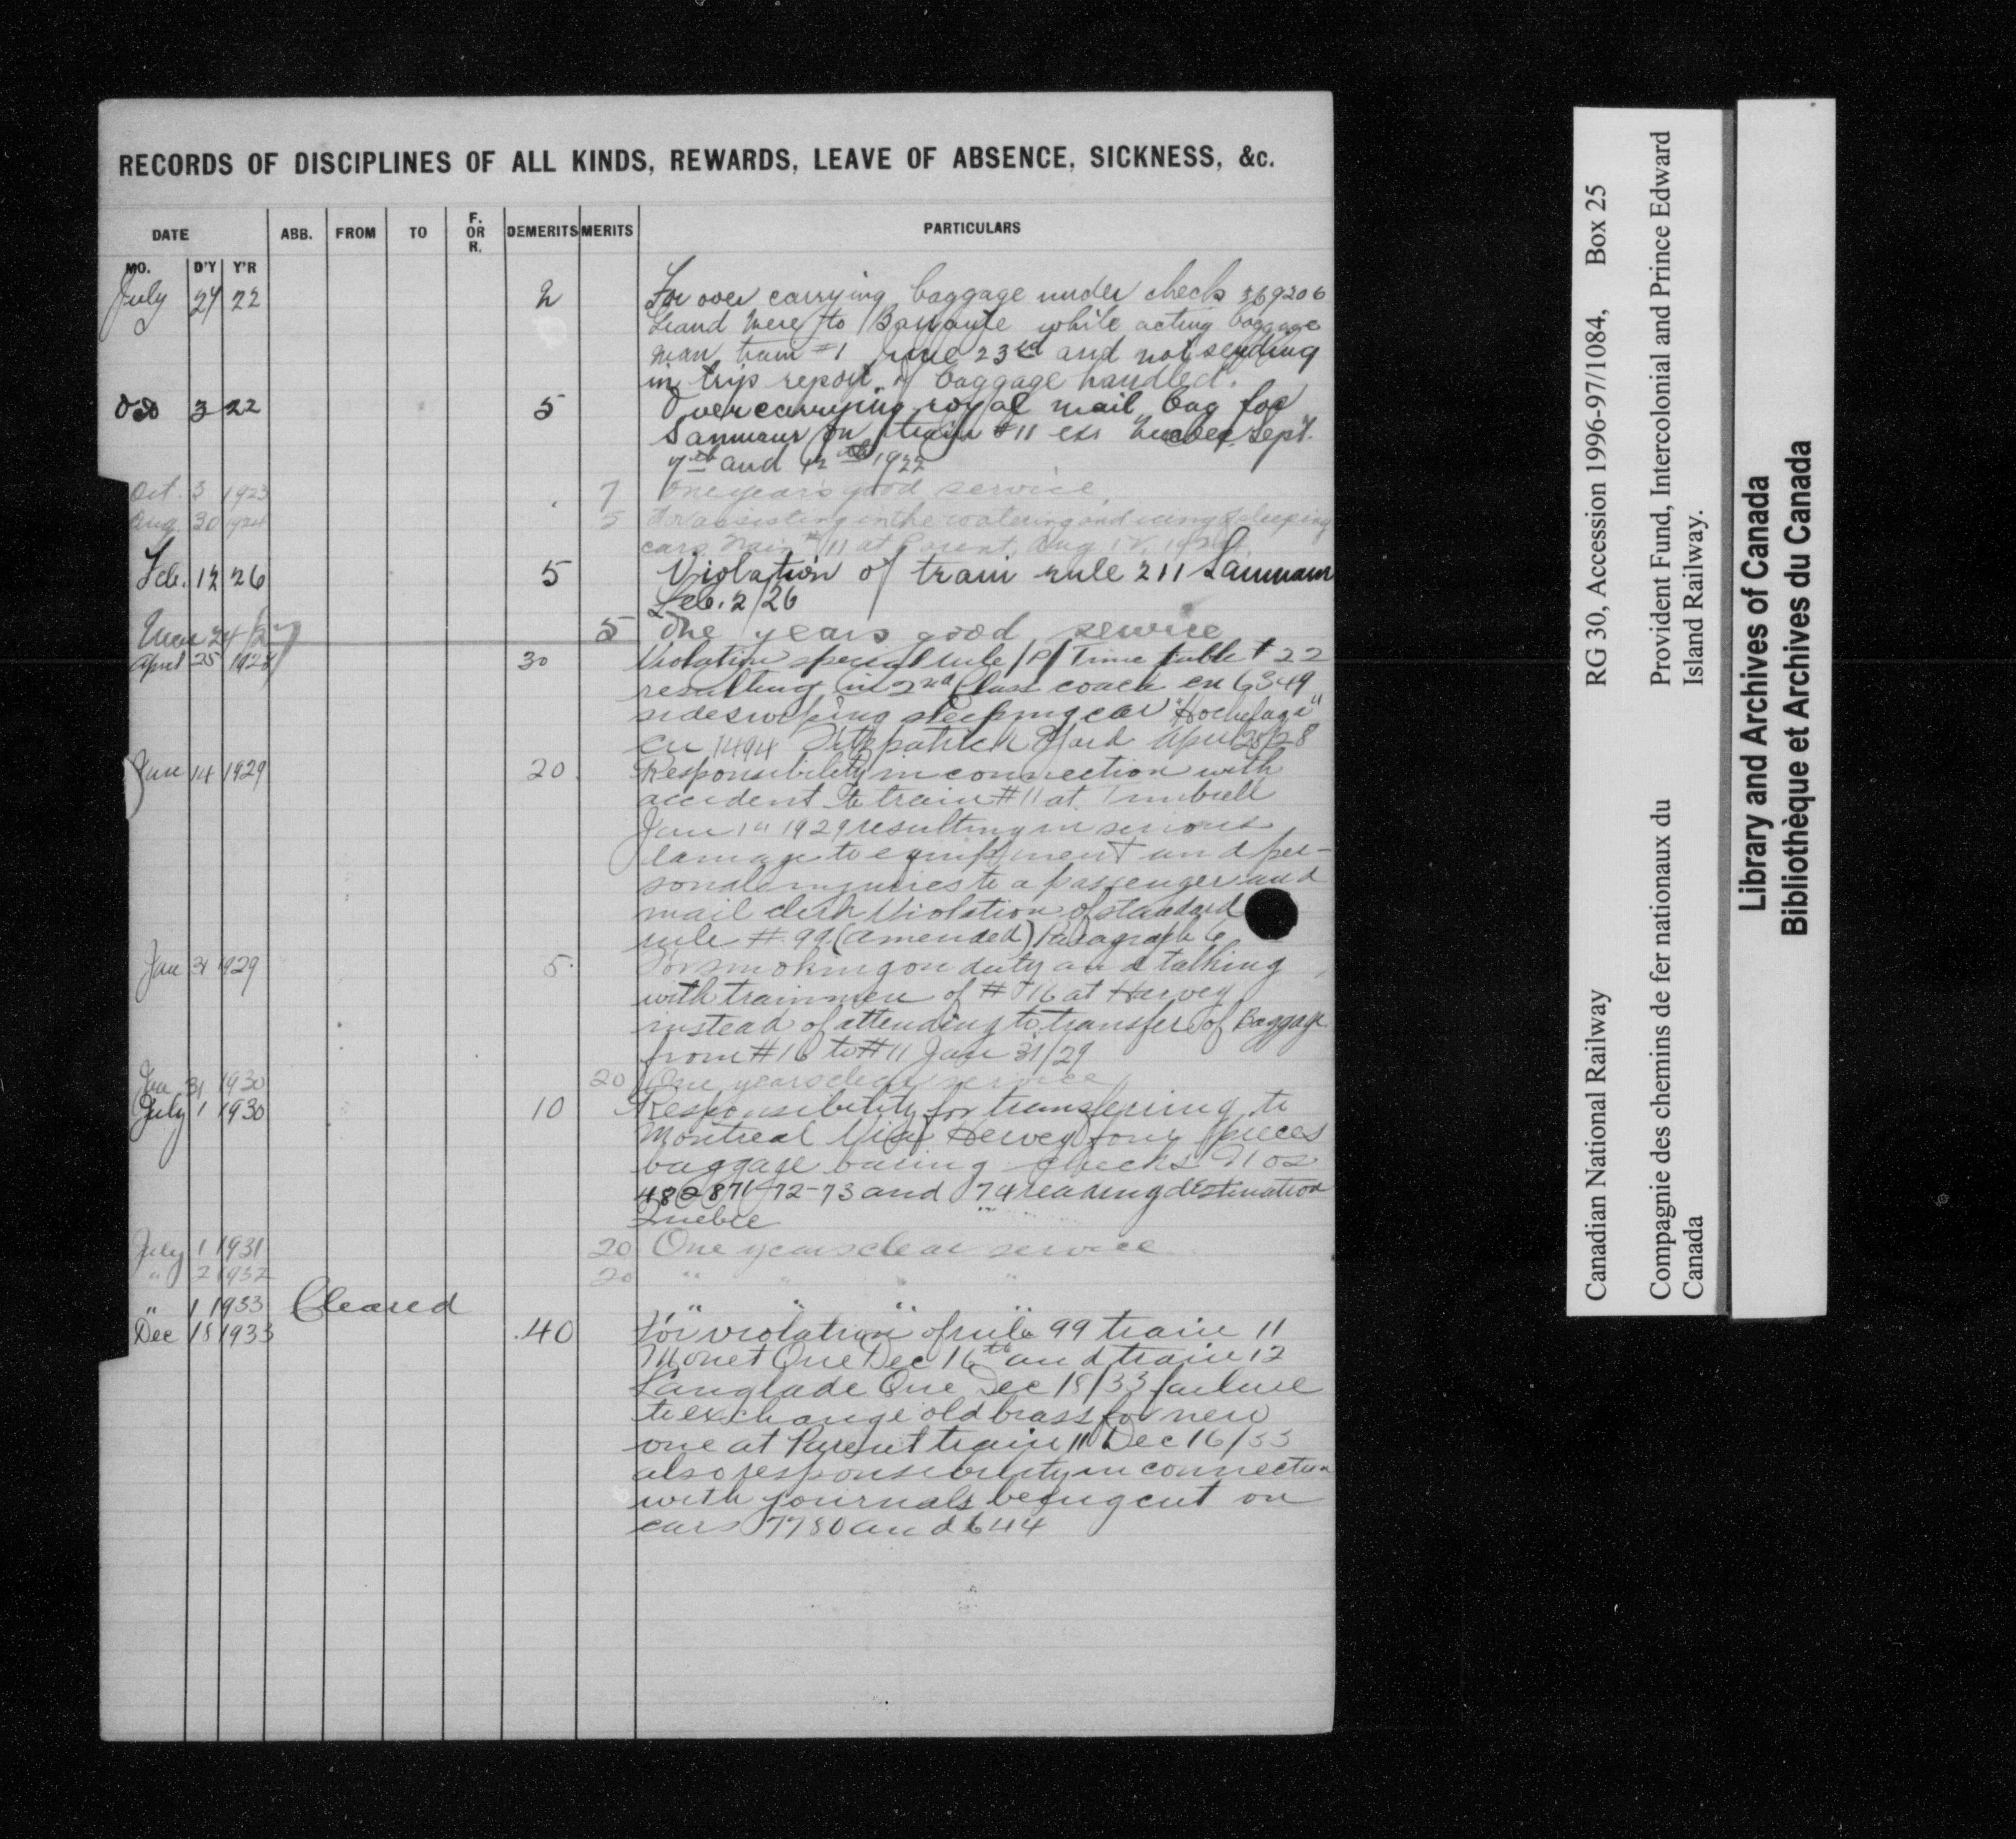 RECORDS OF DISCIPLINES OF ALL KINDS, REWARDS, LEAVE OF ABSENCE, SICKNESS, &c.
DATE ABB. FROM TO F. OR R. DEMERITS MERITS PARTICULARS
MO. D'Y Y'R
July 24 22 2 For over carrying baggage under check 369206
Grand Mere to while acting baggage
man train #1 June 23rd and not sending
in trip report of baggage handled.
Oct 3 22 5 Overcarrying royal mail bag for
Sanmaur on train #11 Quebec Sept.
7th and 12th 1922
Oct. 3 1923 7 One year's good service.
Aug. 30 1924 5 For assisting in the watering and icing of sleeping
cars train #11 at Parent, Aug
Feb. 12 26 5 Violation of train rule 211 Sanmaur
Feb. 2/26
Mar 24/27 5 One years good service
April 25 1928 30 Violation special rule /P/ Time table #22
resulting in 2nd Class coach cn 6349
sideswiping sleeping car "Hochelaga"
cn 1494 Fitzpatrick Yard April 25/28
Jan 14 1929 20 Responsibility in connection with
accident to train #11 at
Jan 1st 1929 resulting in serious
damage to equipment and per-
sonal injuries to a passenger and
mail clerk Violation of standard
rule #99 (amended) Paragraph 6
Jan 31 1929 5. For smoking on duty and talking
with trainmen of #16 at Hervey
instead of attending to transfer of Baggage
from #16 to #11 Jan 31/29
Jan 31 1930 20 One years clear service
July 1 1930 10 Responsibility for transferring to
Montreal Via Hervey four pieces
baggage baring checks Nos
480-871-72-73 and 74 reading destination
Quebec
July 1 1931 20 One years clear service
" 2 1932 20 " " " "
" 1 1933 Cleared " " " "
Dec 18 1933 40 For violation of rule 99 train 11
Monet Que Dec 16th and train 12
Langlade Que Dec 18/33 failure
to exchange old brass for new
one at Parent train 11 Dec 16/33
also responsibility in connection
with journals being cut on
cars 7780 and 644
Canadian National Railway RG 30, Accession 1996-97/1084, Box 25
Compagnie des chemins de fer nationaux du Canada
Provident Fund, Intercolonial and Prince Edward Island Railway.
Library and Archives of Canada
Bibliothèque et Archives du Canada